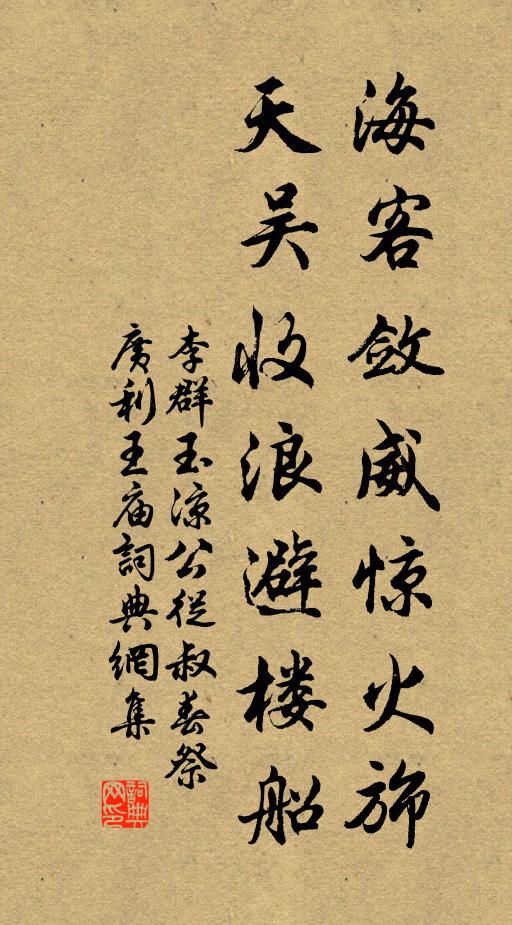 海客敛威惊火旆
天吴收浪避楼船
李群玉凉公從叔春祭
廣利王庙詞典網集
詞典网印